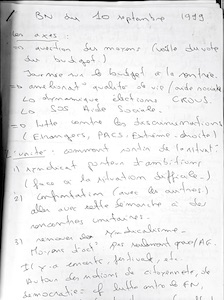 BN du 10 septembre 1999
Les axes :
=> question des moyens (veille du vote
du budget)
Journée sur le budget à la rentrée.
=> améliorat° qualité de vie (aide sociale
↳ dynamique élections CROUS
↳ SOS Aide Sociale.
=> Lutte contre les discriminations
(Etrangers, PACS, Extrême-droite)
L'unité : comment sortir de l'
1) syndicat porteur d'ambitions
(face à la situation difficile)
2) confrontation (avec les autres)
aller avec cette démarche à des
rencontres unitaires.
3) renouveler le syndicalisme.
Moyens d'act° pas seulement grève/AG.
Il y a concerts, festivals, etc.
Autour des notions de citoyenneté, de
démocratie, cf lutte contre le FN,